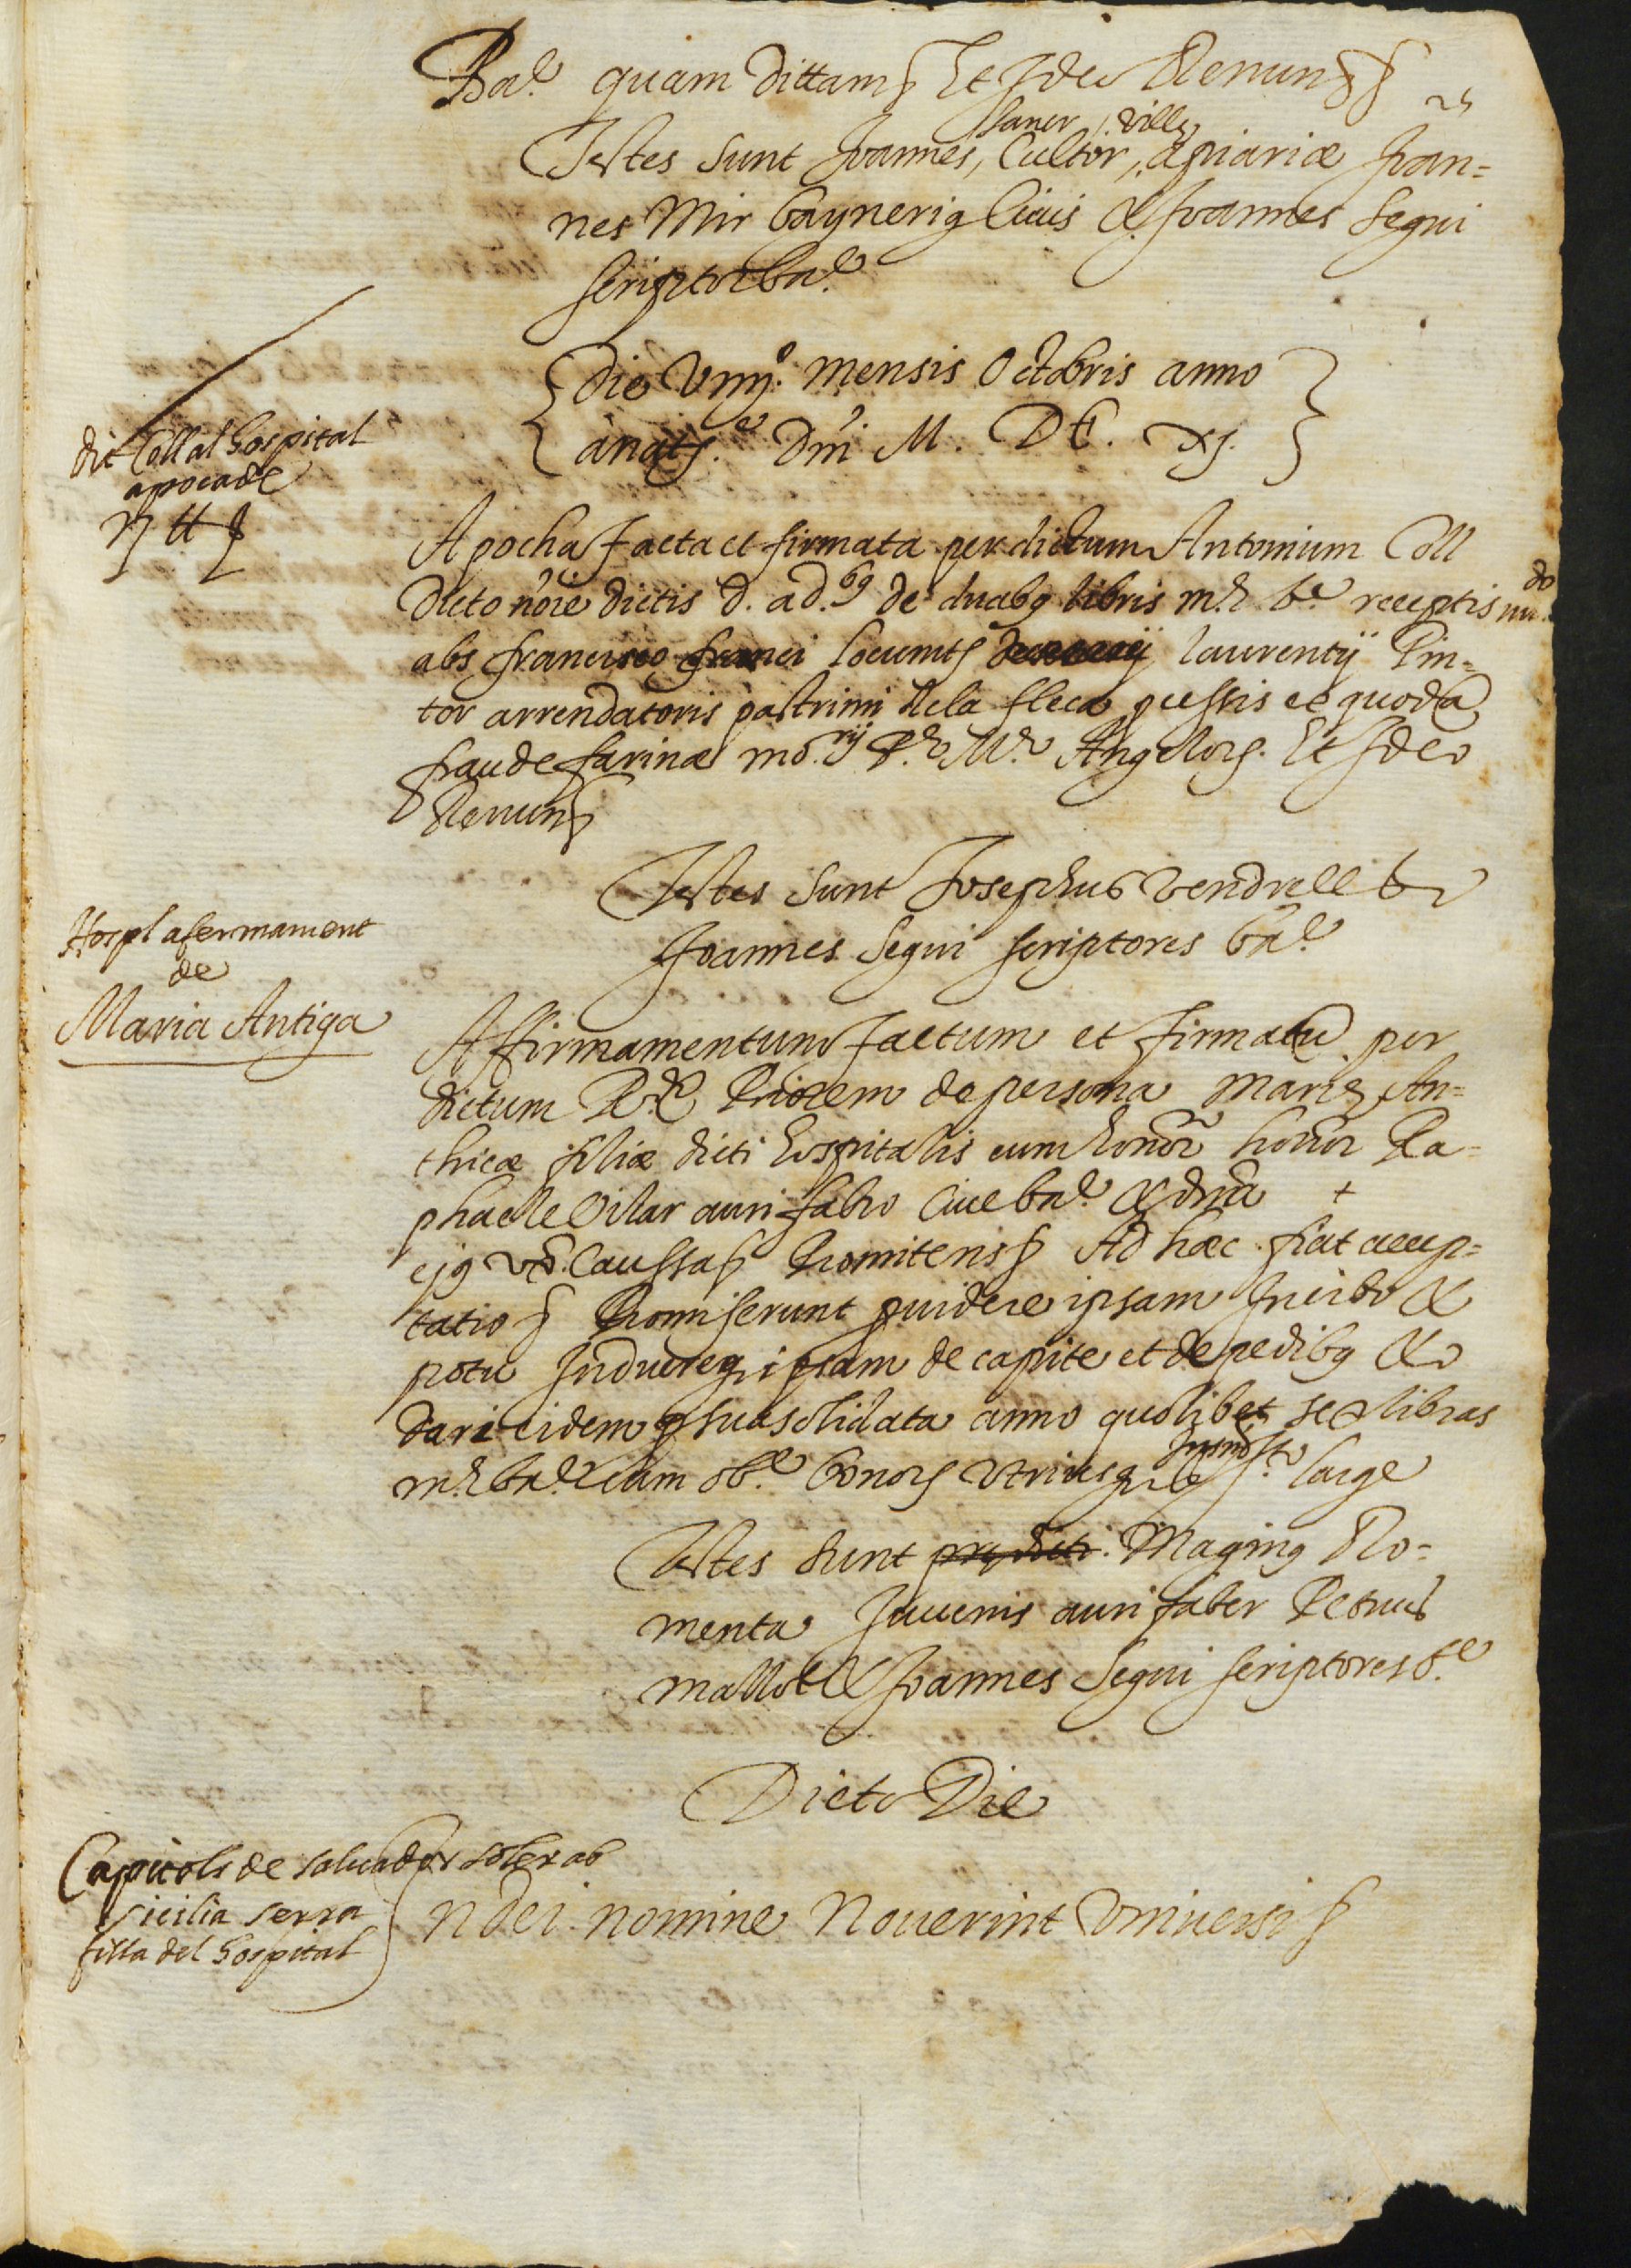 Ba.e quam dictam Et Ideo Renun
Saner ville
Testes sunt Joannes, Cultor, apiariæ Joan=
nes Mir baynerig Ciuis & Joannes Segui
scriptor ba.e
Die Vnij.o mensis Octobris anno
anat.e Dni M. DC. xj.
dit Coll al hospital
apoca de
Apocha facta et firmata per dictum Antonium Coll
dicto noie dictis d. ad.bg de duabg libris m.l b.e receptis nu.do
abs francisco locumts laurentij Pin=
tor arrendatoris pastrimi de la fleca p cessis et quoda
fraude farinæ Angelors. Et Ideo
Renun
Testes sunt Josephus vendrell &
Joannes Segui scriptores ba.e
Hospl afermament
de
Maria Antiga
Affirmamentum factum et firmatu per
dictum R.d Priorem de persona Marie An=
thicæ filiæ dicti hospitalis cum honor honor Ra=
phaele Vilar aurifabro Ciue ba.e & dna +
ejg vx. Caussa Promitens Ad hæc fiat accep=
tatio Promiserunt puidere ipsam In cibo &
potu Induereq ipsam de capite et de pedibg &
dari eidem p sua solidata anno quolibet sex libras
m.l ba.e Cum ob.e bonors vtriusq large
Testes sunt predicti. Maging Ro=
menta Juuenis aurifaber Petrus
mallol & Joannes Segui scriptores b.e
Dicto Die
Capitols de saluador soler ab
sicilia serra
filla del hospital
N dei nomine Nouerint Vniuersi